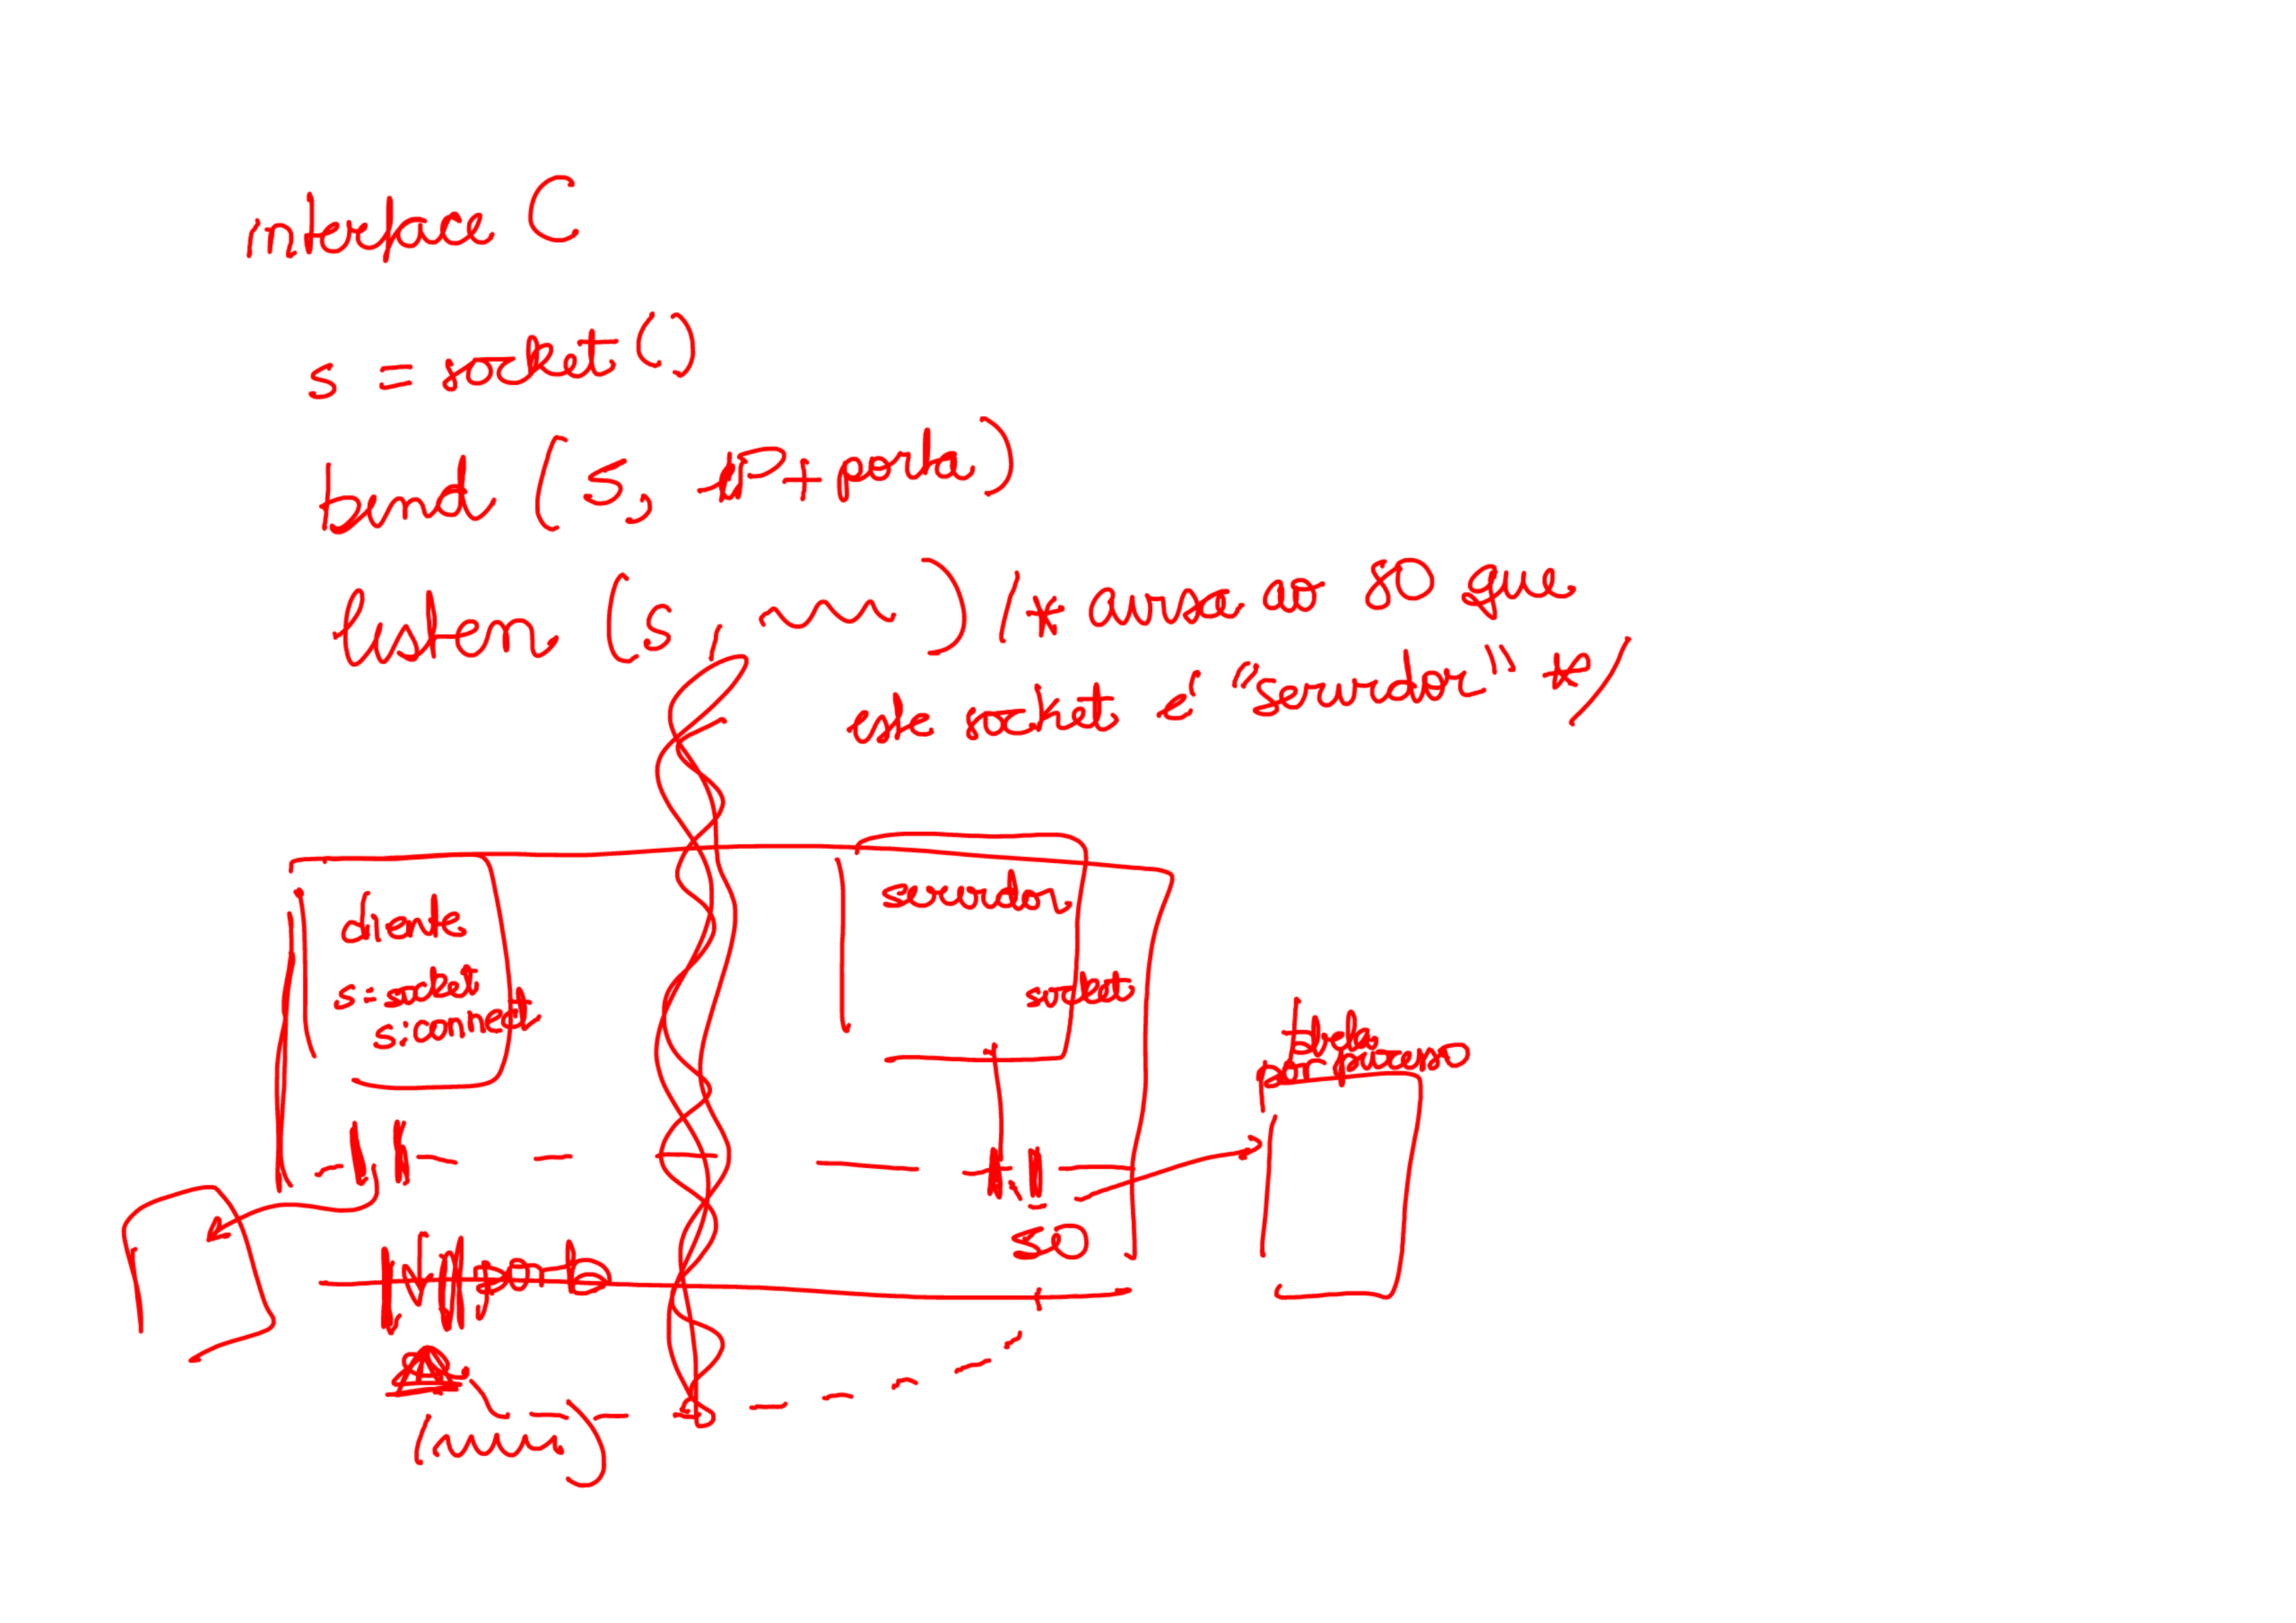 interface C
s = socket()
bind (s, IP+porta)
listen (s, ) /* avisa ao SO que
este socket é "servidor" */
cliente
s=socket
s:connect
servidor
socket
tabela
por processo
SO
porta